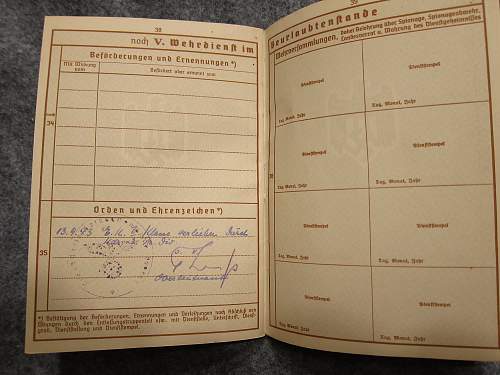 38
noch V. Wehrdienst im
Beförderungen und Ernennungen *)
Mit Wirkung vom
Befördert oder ernannt zum
34
Orden und Ehrenzeichen *)
35
13.9.43 E.K. Klasse verliehen
*) Bestätigung der Beförderungen, Ernennungen und Verleihungen nach Abschluß von
Übungen durch den Entlassungstruppenteil usw. mit Dienststelle, Unterschrift, Dienst-
grad, Dienststellung und Dienststempel.
39
Beurlaubtenstande
Wehrversammlungen, dabei Belehrung über Spionage, Spionageabwehr,
Landesverrat u. Wahrung des Dienstgeheimnisses
Dienststempel
Dienststempel
Tag, Monat, Jahr
Tag, Monat, Jahr
Dienststempel
Dienststempel
Tag, Monat, Jahr
Tag, Monat, Jahr
Dienststempel
Dienststempel
Tag, Monat, Jahr
Tag, Monat, Jahr
Dienststempel
Dienststempel
Tag, Monat, Jahr
Tag, Monat, Jahr